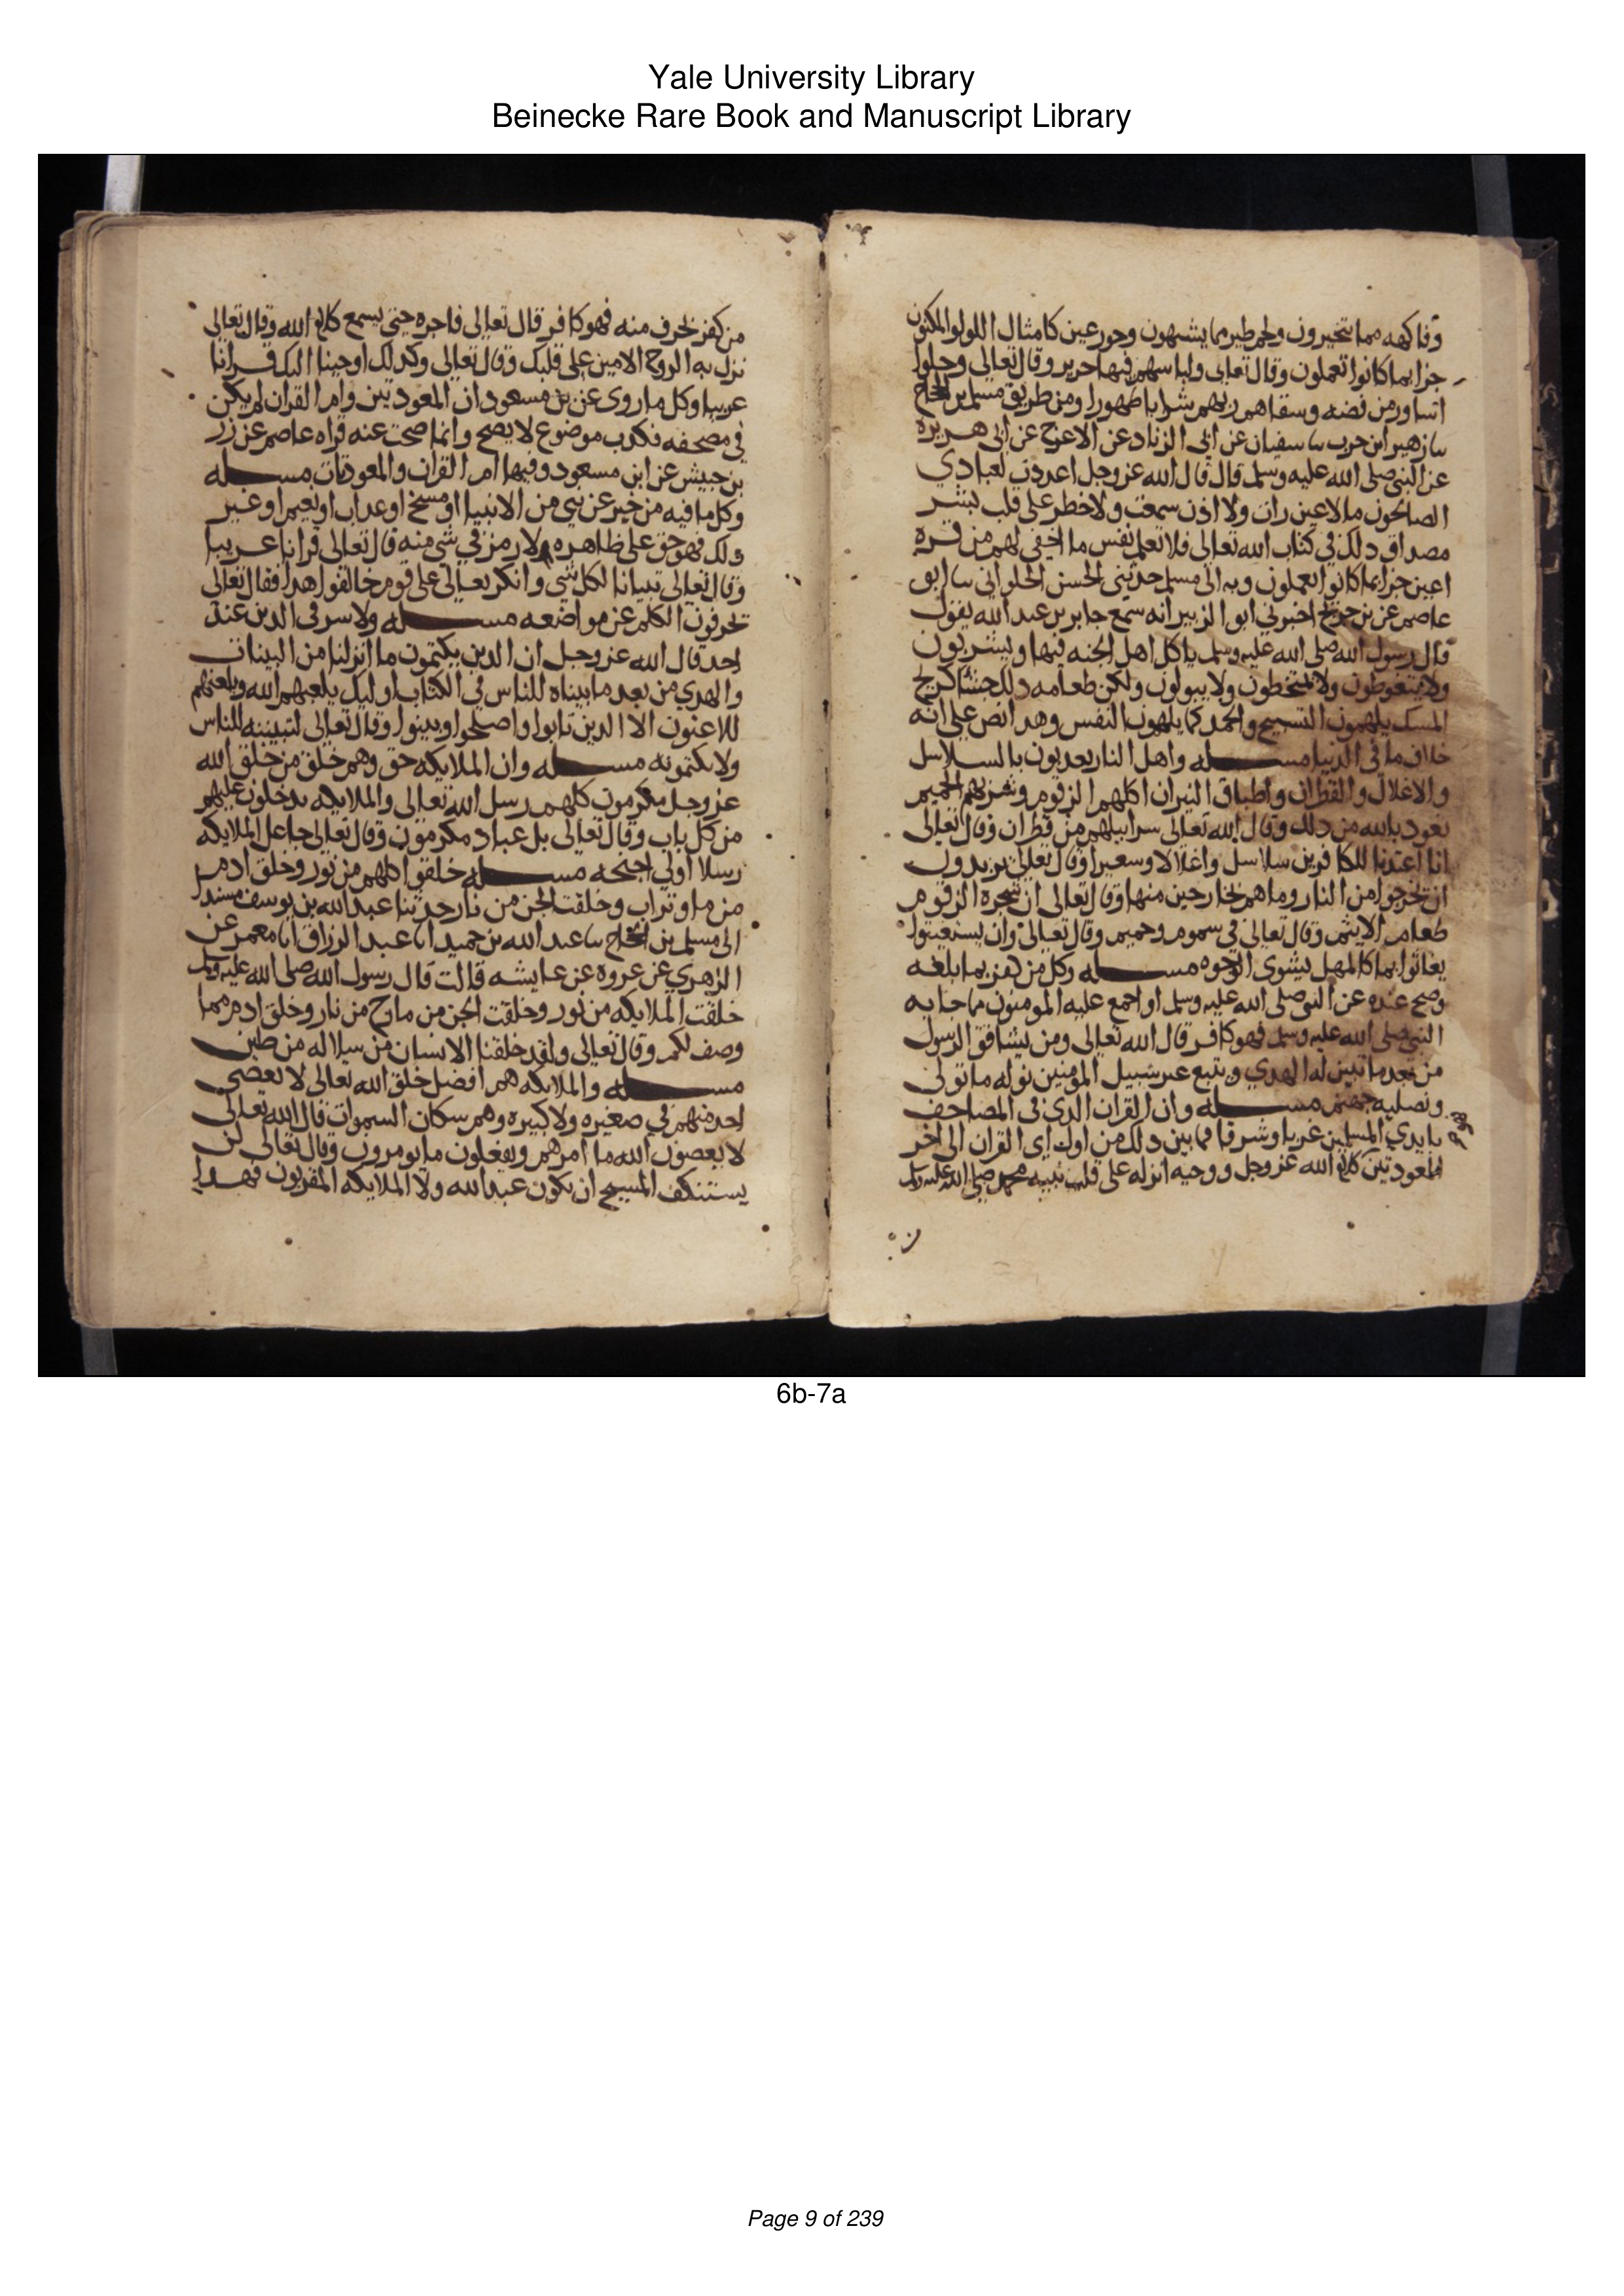 Yale University Library
Beinecke Rare Book and Manuscript Library
وفاكهه مما يتخيرون ولحم طير مما يشتهون وحور عين كامثال اللولوا المكنون
جزا بما كانوا يعملون وقال تعالى ولباسهم فيها حرير وقال تعالى وحلوا
اساور من فضه وسقاهم ربهم شرابا طهورا ومن طريق مسلم بن الحجاج
سا زهير ابن حرب سا سفيان عن ابي الزناد عن الاعرج عن ابي هريره
عن النبي صلى الله عليه وسلم قال قال الله عز وجل اعددت لعبادي
الصالحون ما لا عين رات ولا اذن سمعت ولا خطر على قلب بشر
مصداق ذلك في كتاب الله تعالى فلا تعلم نفس ما اخفي لهم من قره
اعين جزا بما كانوا يعملون وبه الى مسلم حدثني الحسن الحلواني سا ابو
عاصم عن بن جريج اخبرني ابو الزبير انه سمع جابر بن عبد الله يقول
قال رسول الله صلى الله عليه وسلم ياكل اهل الجنه فيها ويشربون
ولا يتغوطون ولا يمتخطون ولا يبولون ولكن طعامهم ذلك جشا كريح
المسك يلهمون التسبيح والحمد كما يلهمون النفس وهدا نص على انه
خلاف ما في الدنيا مسله واهل النار يعدبون بالسلاسل
والاغلال والقطران واطباق النيران اكلهم الزقوم وشربهم الحميم
نعود بالله من دلك وقال الله تعالى سرابيلهم من قطران وقال تعالى
انا اعتدنا للكافرين سلاسل واغلالا وسعيرا وقال تعالى يريدون
ان يخرجوا من النار وما هم بخارجين منها وقال تعالى ان شجره الزقوم
طعام الاثيم وقال تعالى في سموم وحميم وقال تعالى وان يستغيثوا
يغاثوا بما كالمهل يشوي الوجوه مسله وكل من كفر بما بلغه
وصح عنده عن النبي صلى الله عليه وسلم او اجمع عليه المومنون مما جا به
النبي صلى الله عليه وسلم فهو كافر قال الله تعالى ومن يشاقق الرسول
من بعد ما تبين له الهدي ويتبع غير سبيل المومنين نوله ما تولى
ونصليه جهنم مسله وان القران الدي في المصاحف
بايدي المسلمين غربا وشرقا فما بين دلك من اول اي القران الى اخر
المعودتين كلام الله عز وجل ووحيه انزله على قلب نبيه محمد صلى الله عليه وسلم
من كفر بحرف منه فهو كافر قال تعالى فاجره حتى يسمع كلام الله وقال تعالى
نزل به الروح الامين على قلبك وقال تعالى وكدلك اوحينا اليك قرانا
عربيا وكل ما روي عن بن مسعود ان المعودتين وام القران لم يكن
في مصحفه فكدب موضوع لا يصح وانما صحت عنه قراه عاصم عن زر
بن حبيش عن ابن مسعود وفيها ام القران والمعودتان مسله
وكل ما فيه من خبر عن نبي من الانبيا او مسخ او عداب او نعيم او غير
دلك فهو حق على ظاهره ولا رمز في شي منه قال تعالى قرانا عربيا
وقال تعالى تبيانا لكل شي وانكر تعالى على قوم خالفوا هدا فقال تعالى
يحرفون الكلم عن مواضعه مسله ولا سر في الدين عند
احد قال الله عز وجل ان الدين يكتمون ما انزلنا من البينات
والهدي من بعد ما بيناه للناس في الكتاب اوليك يلعنهم الله ويلعنهم
اللاعنون الا الدين تابوا واصلحوا وبينوا وقال تعالى لتبيننه للناس
ولا يكتمونه مسله وان الملايكه حق وهم خلق من خلق الله
عز وجل مكرمون كلهم رسل الله تعالى والملايكه يدخلون عليهم
من كل باب وقال تعالى بل عباد مكرمون وقال تعالى جاعل الملايكه
رسلا اولي اجنحه مسله خلقوا كلهم من نور وخلق ادم
من ما وتراب وخلقت الجن من نار حدثنا عبد الله بن يوسف
الى مسلم بن الحجاج سا عبد الله بن حميد انا عبد الرزاق انا معمر عن
الزهري عن عروه عن عايشه قالت قال رسول الله صلى الله عليه وسلم
خلقت الملايكه من نور وخلقت الجن من مارج من نار وخلق ادم مما
وصف لكم وقال تعالى ولقد خلقنا الانسان من سلاله من طين
مسله والملايكه هم افضل خلق الله تعالى لا يعصي
احد منهم في صغيره ولا كبيره وهم سكان السموات قال الله تعالى
لا يعصون الله ما امرهم ويفعلون ما يومرون وقال تعالى لن
يستنكف المسيح ان يكون عبدا لله ولا الملايكه المقربون فهدا
6b-7a
Page 9 of 239